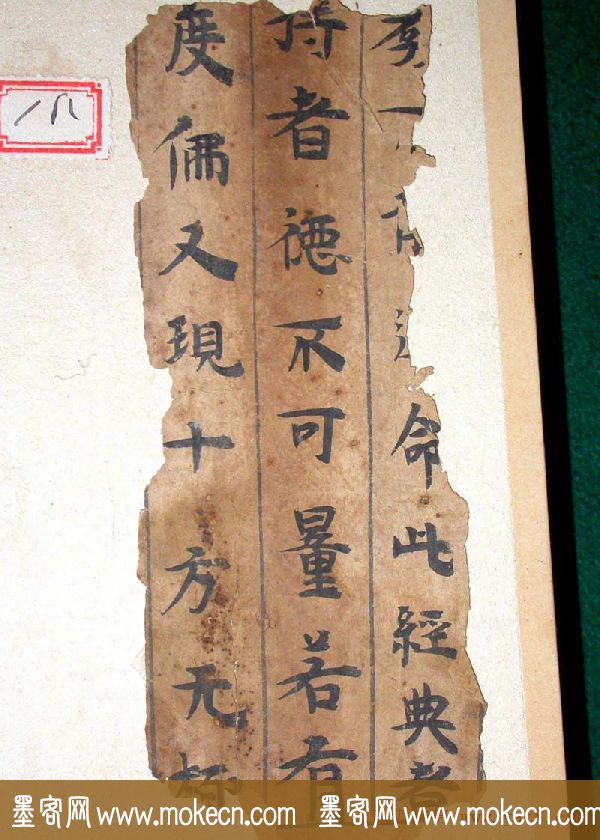 命此經典者
持者德不可量若有
度佛又現十方无極
墨客网 www.mokecn.com 墨客网 www.mokecn.com